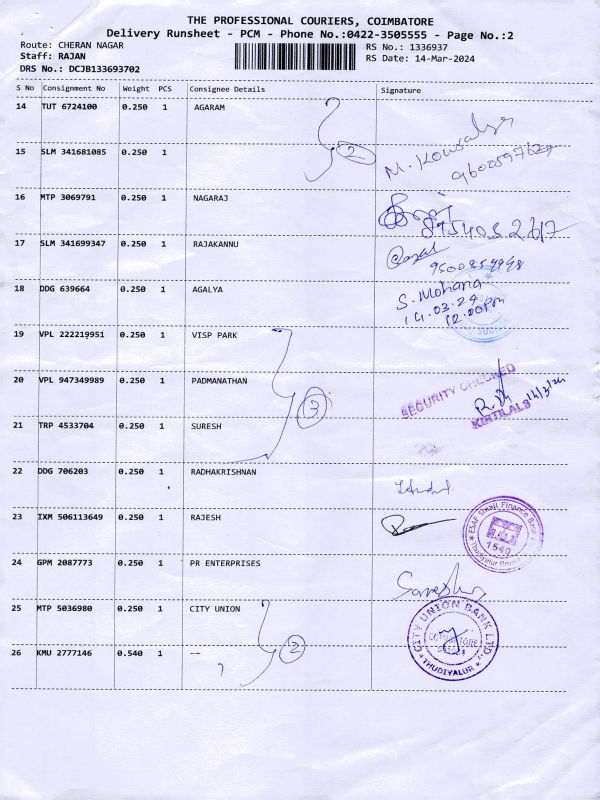 THE PROFESSIONAL COURIERS, COIMBATORE
Delivery Runsheet - PCM - Phone No.:0422-3505555 - Page No.:2
Route: CHERAN NAGAR
RS No.: 1336937
Staff: RAJAN
RS Date: 14-Mar-2024
DRS No.: DCJB133693702
S No Consignment No Weight PCS Consignee Details Signature
14 TUT 6724100 0.250 1 AGARAM
15 SLM 341681085 0.250 1 2
M. Kowsalya
9600597627
16 MTP 3069791 0.250 1 NAGARAJ
8754032617
17 SLM 341699347 0.250 1 RAJAKANNU
9500854948
18 DDG 639664 0.250 1 AGALYA
S. Mohana
14.03.24
12.00pm
19 VPL 222219951 0.250 1 VISP PARK
20 VPL 947349989 0.250 1 PADMANATHAN 3
SECURITY CHECKED
KIRTILALS
21 TRP 4533704 0.250 1 SURESH
22 DDG 706203 0.250 1 RADHAKRISHNAN
23 IXM 506113649 0.250 1 RAJESH
ESAF Small Finance Bank
1540
24 GPM 2087773 0.250 1 PR ENTERPRISES
25 MTP 5036980 0.250 1 CITY UNION 2
CITY UNION BANK LTD
THUDIYALUR
26 KMU 2777146 0.540 1 --